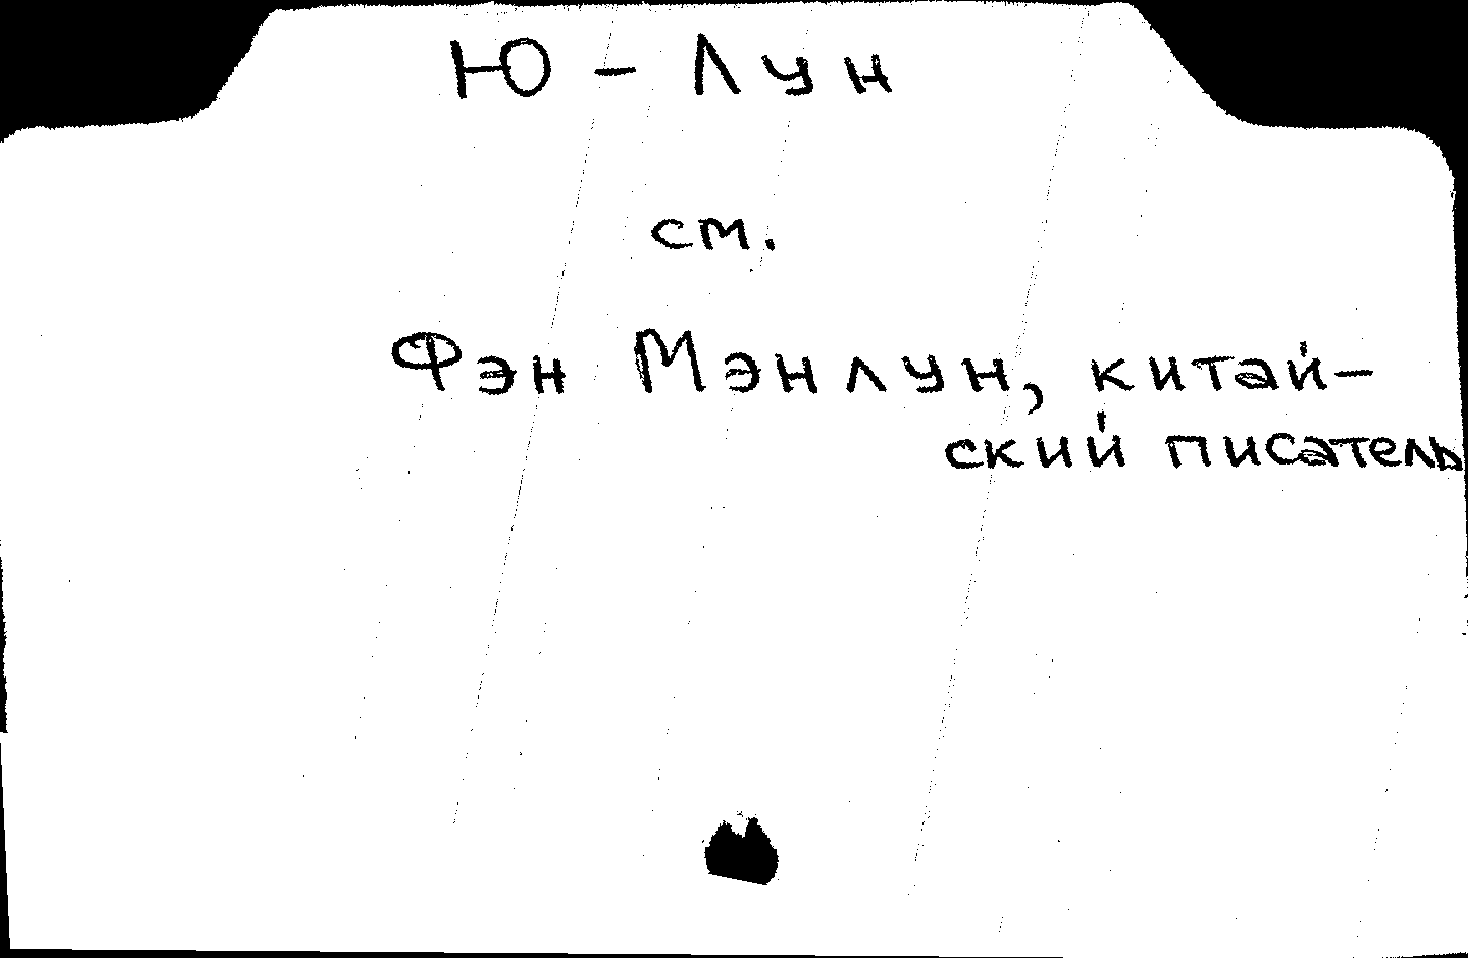 Ю - Лун
см.
Фэн Мэнлун, китай-
ский писатель